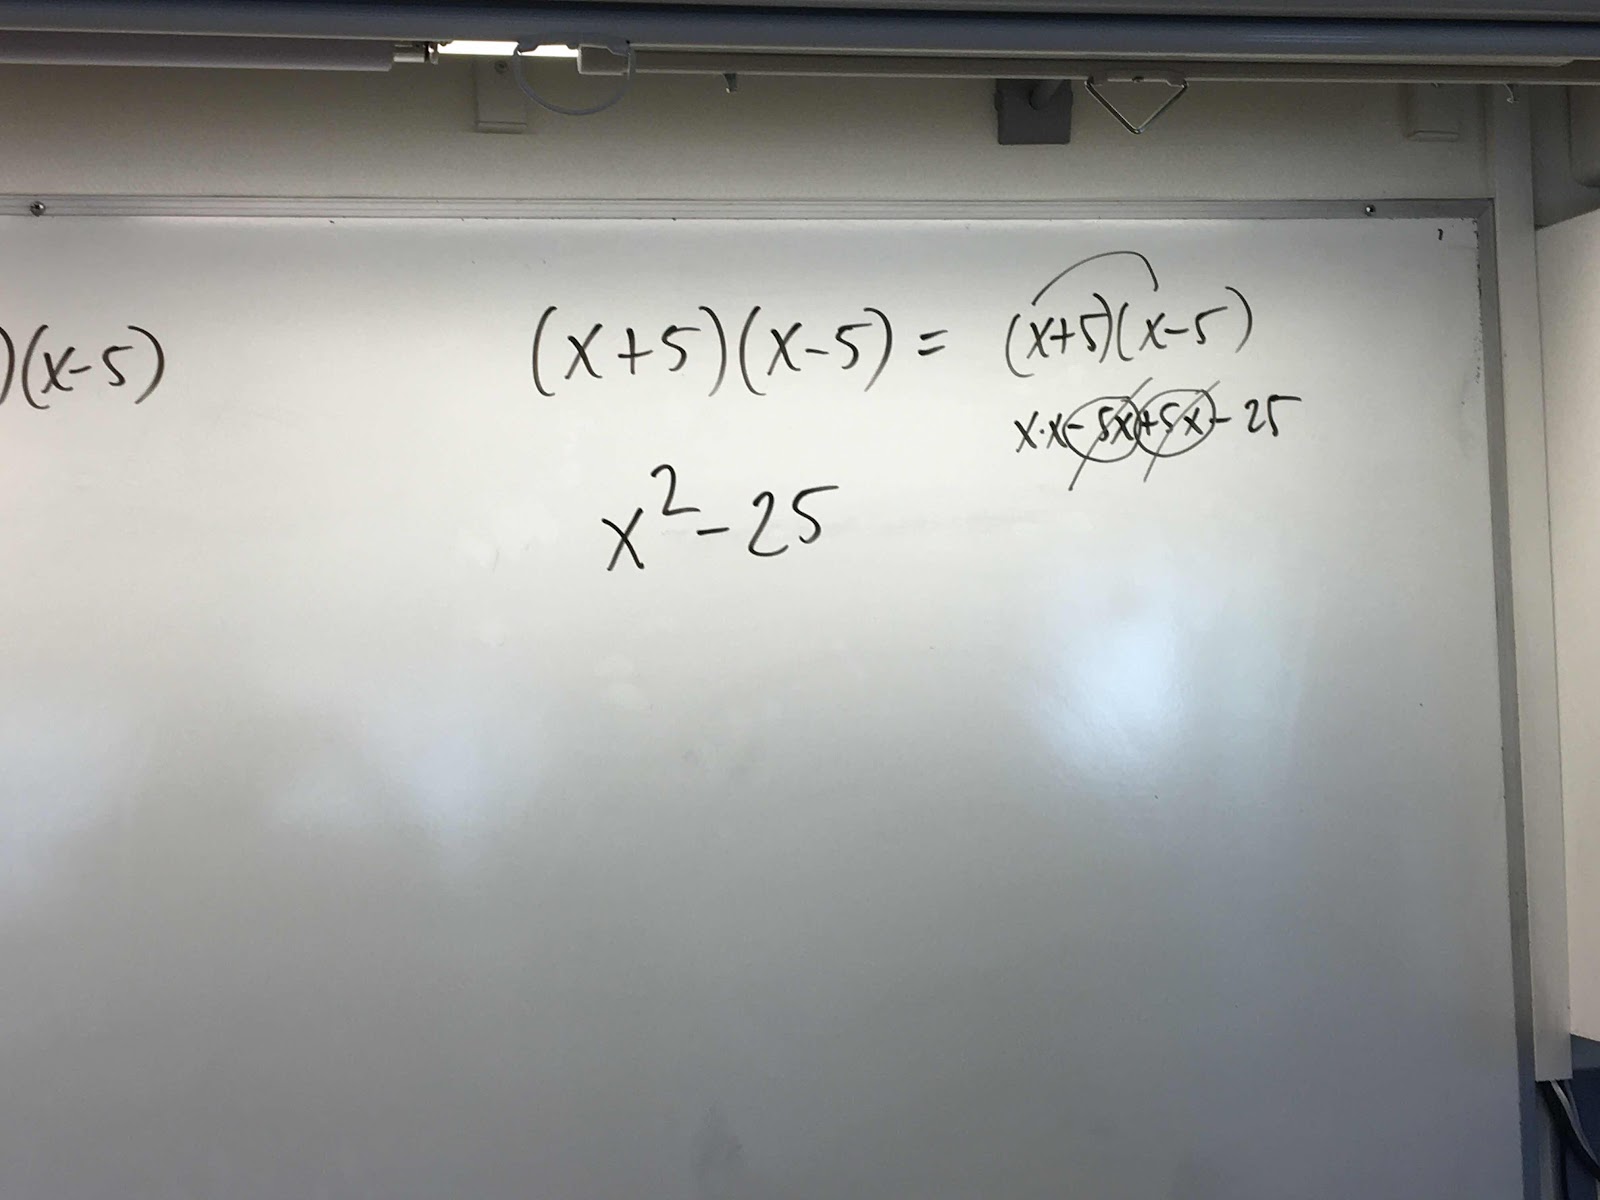 )(x-5)
(x+5)(x-5) = (x+5)(x-5)
x·x-5x+5x-25
x²-25